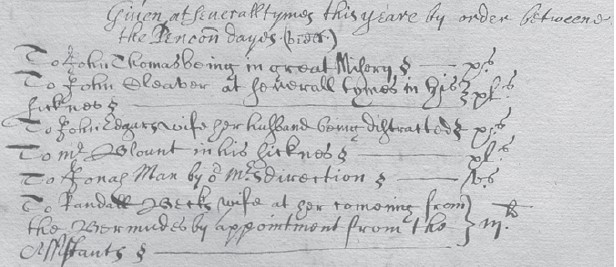 Given at severall tymes this yeare by order betweene
the Pencon dayes (vizt.)
To John Thomas being in great Misery — xs
To John Cleaver at severall tymes in his
sicknes — xls
To John Edgars wife her husband being distracted — xs
To Mr Blount in his sicknes — xls
To Jonah Man by or Mrs direction — vs
To Randall Becks wife at her comeing from
the Bermudes by appointment from the
Assistants — iijli